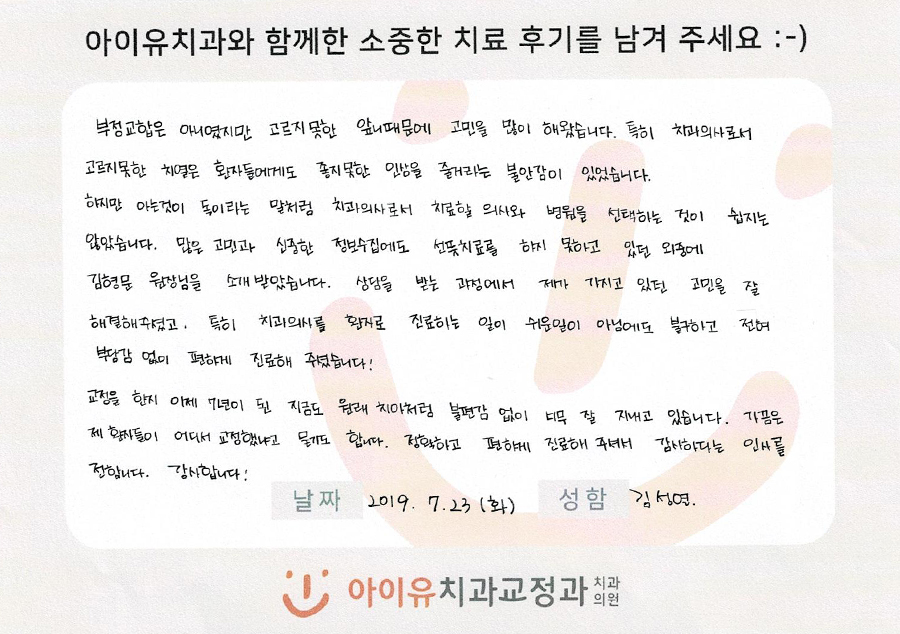 아이유치과와 함께한 소중한 치료 후기를 남겨 주세요 :-)
부정교합은 아니였지만 고르지못한 앞니때문에 고민을 많이 해왔습니다. 특히 치과의사로서
고르지못한 치열은 환자들에게도 좋지못한 인상을 줄거라는 불안감이 있었습니다.
하지만 아는것이 독이라는 말처럼 치과의사로서 치료할 의사와 병원을 선택하는 것이 쉽지는
않았습니다. 많은 고민과 신중한 정보수집에도 선뜻치료를 하지 못하고 있던 와중에
김형문 원장님을 소개받았습니다. 상담을 받는 과정에서 제가 가지고 있던 고민을 잘
해결해주셨고, 특히 치과의사를 환자로 진료하는 일이 쉬운일이 아님에도 불구하고 전혀
부담감 없이 편하게 진료해 주셨습니다!
교정을 한지 이제 7년이 된 지금도 원래 치아처럼 불편감 없이 너무 잘 지내고 있습니다. 가끔은
제 환자들이 어디서 교정했냐고 물기도 합니다. 정확하고 편하게 진료해 주셔서 감사하다는 인사를
전합니다. 감사합니다!
날짜 2019. 7.23 (화) 성함 김성연.
아이유치과교정과 치과의원